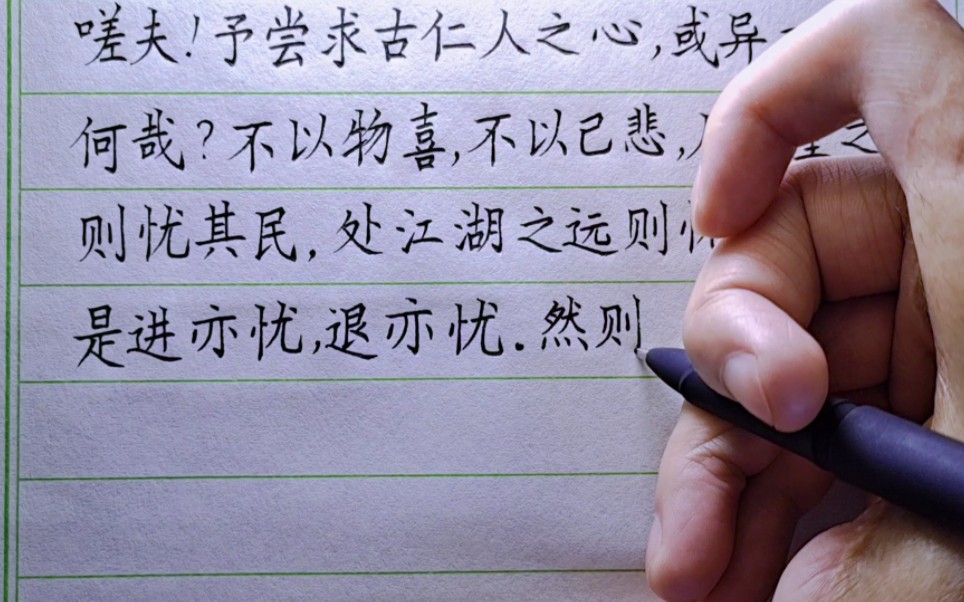 嗟夫!予尝求古仁人之心,或异
何哉?不以物喜,不以己悲,
则忧其民,处江湖之远则
是进亦忧,退亦忧.然则